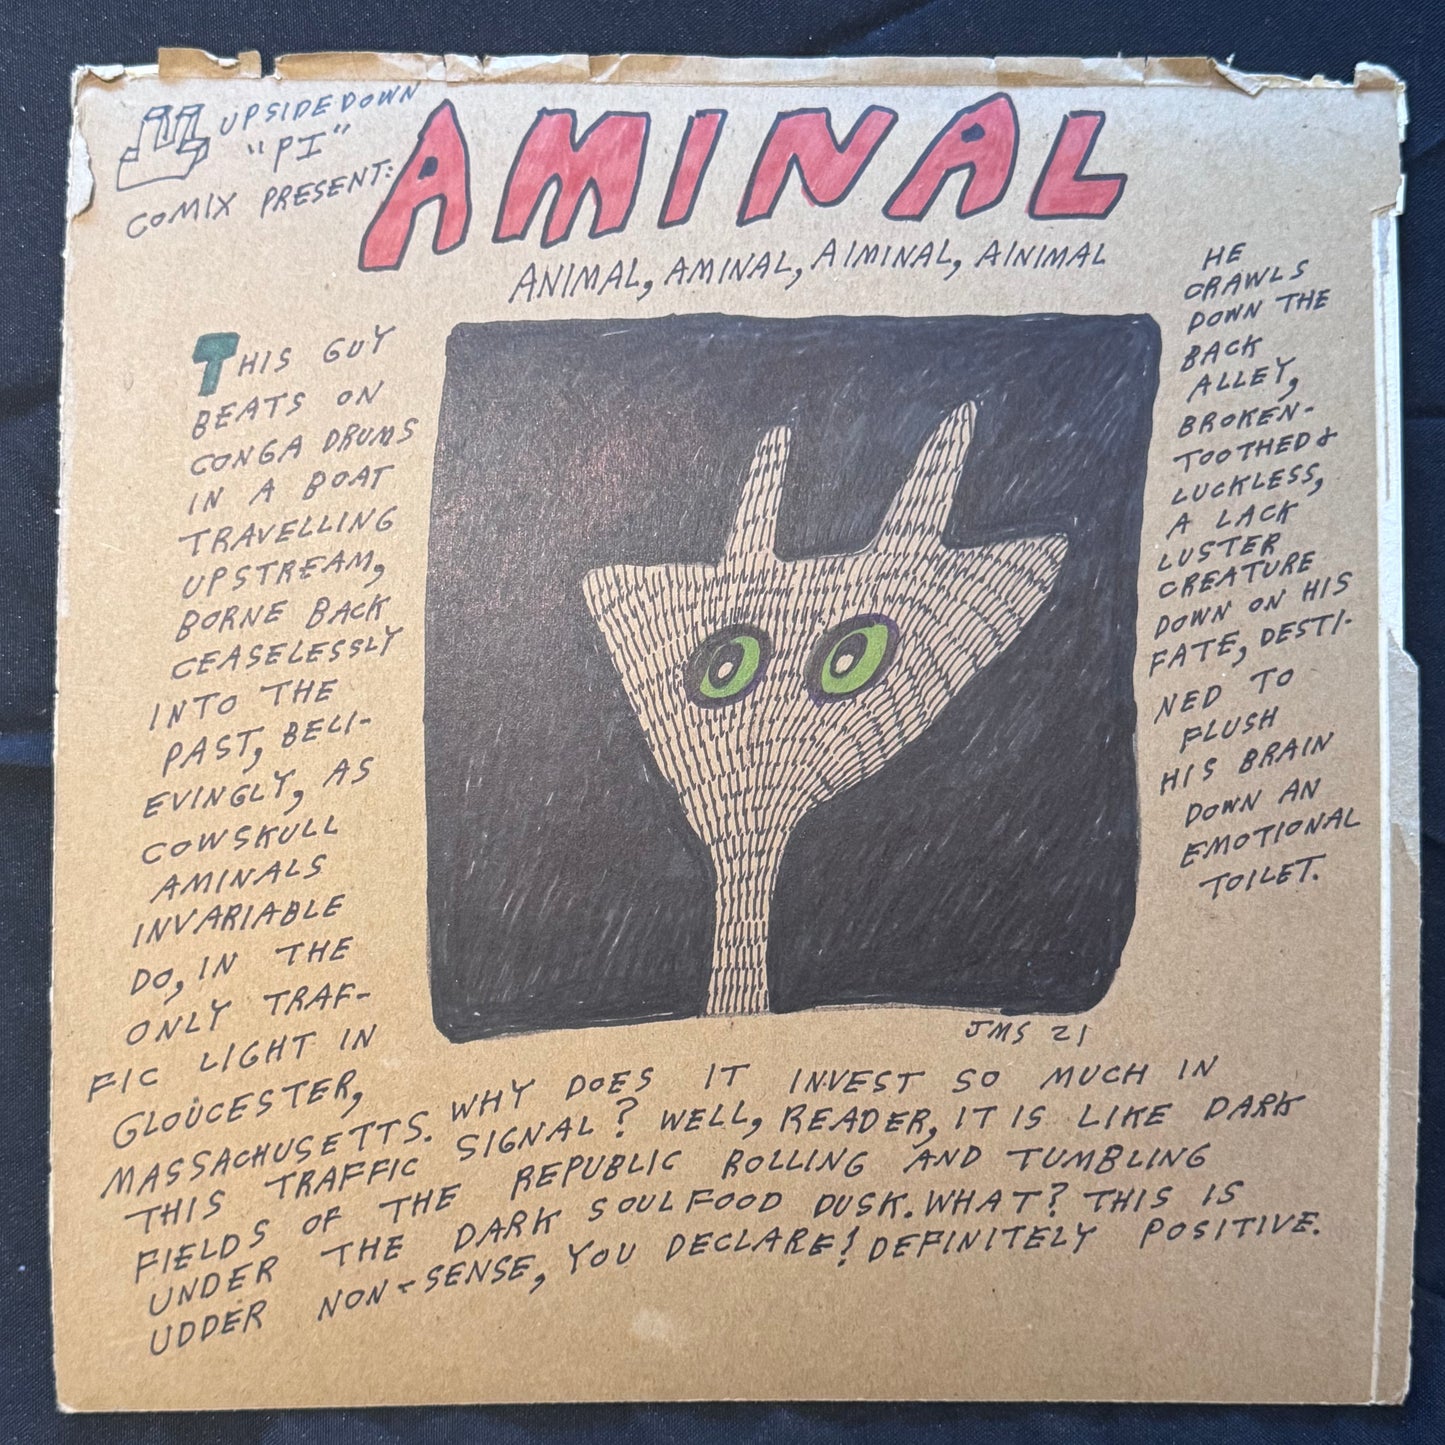 UPSIDEDOWN
"PI"
COMIX PRESENT:
AMINAL
ANIMAL, AMINAL, AIMINAL, AINIMAL
THIS GUY
BEATS ON
CONGA DRUMS
IN A BOAT
TRAVELLING
UPSTREAM,
BORNE BACK
CEASELESSLY
INTO THE
PAST, BELI-
EVINGLY, AS
COWSKULL
AMINALS
INVARIABLE
DO, IN THE
ONLY TRAF-
FIC LIGHT IN
GLOUCESTER,
MASSACHUSETTS. WHY DOES IT INVEST SO MUCH IN
THIS TRAFFIC SIGNAL? WELL, READER, IT IS LIKE DARK
FIELDS OF THE REPUBLIC ROLLING AND TUMBLING
UNDER THE DARK SOULFOOD DUSK. WHAT? THIS IS
UDDER NON-SENSE, YOU DECLARE! DEFINITELY POSITIVE.
HE
CRAWLS
DOWN THE
BACK
ALLEY,
BROKEN-
TOOTHED &
LUCKLESS,
A LACK
LUSTER
CREATURE
DOWN ON HIS
FATE, DESTI-
NED TO
FLUSH
HIS BRAIN
DOWN AN
EMOTIONAL
TOILET.
JMS 21